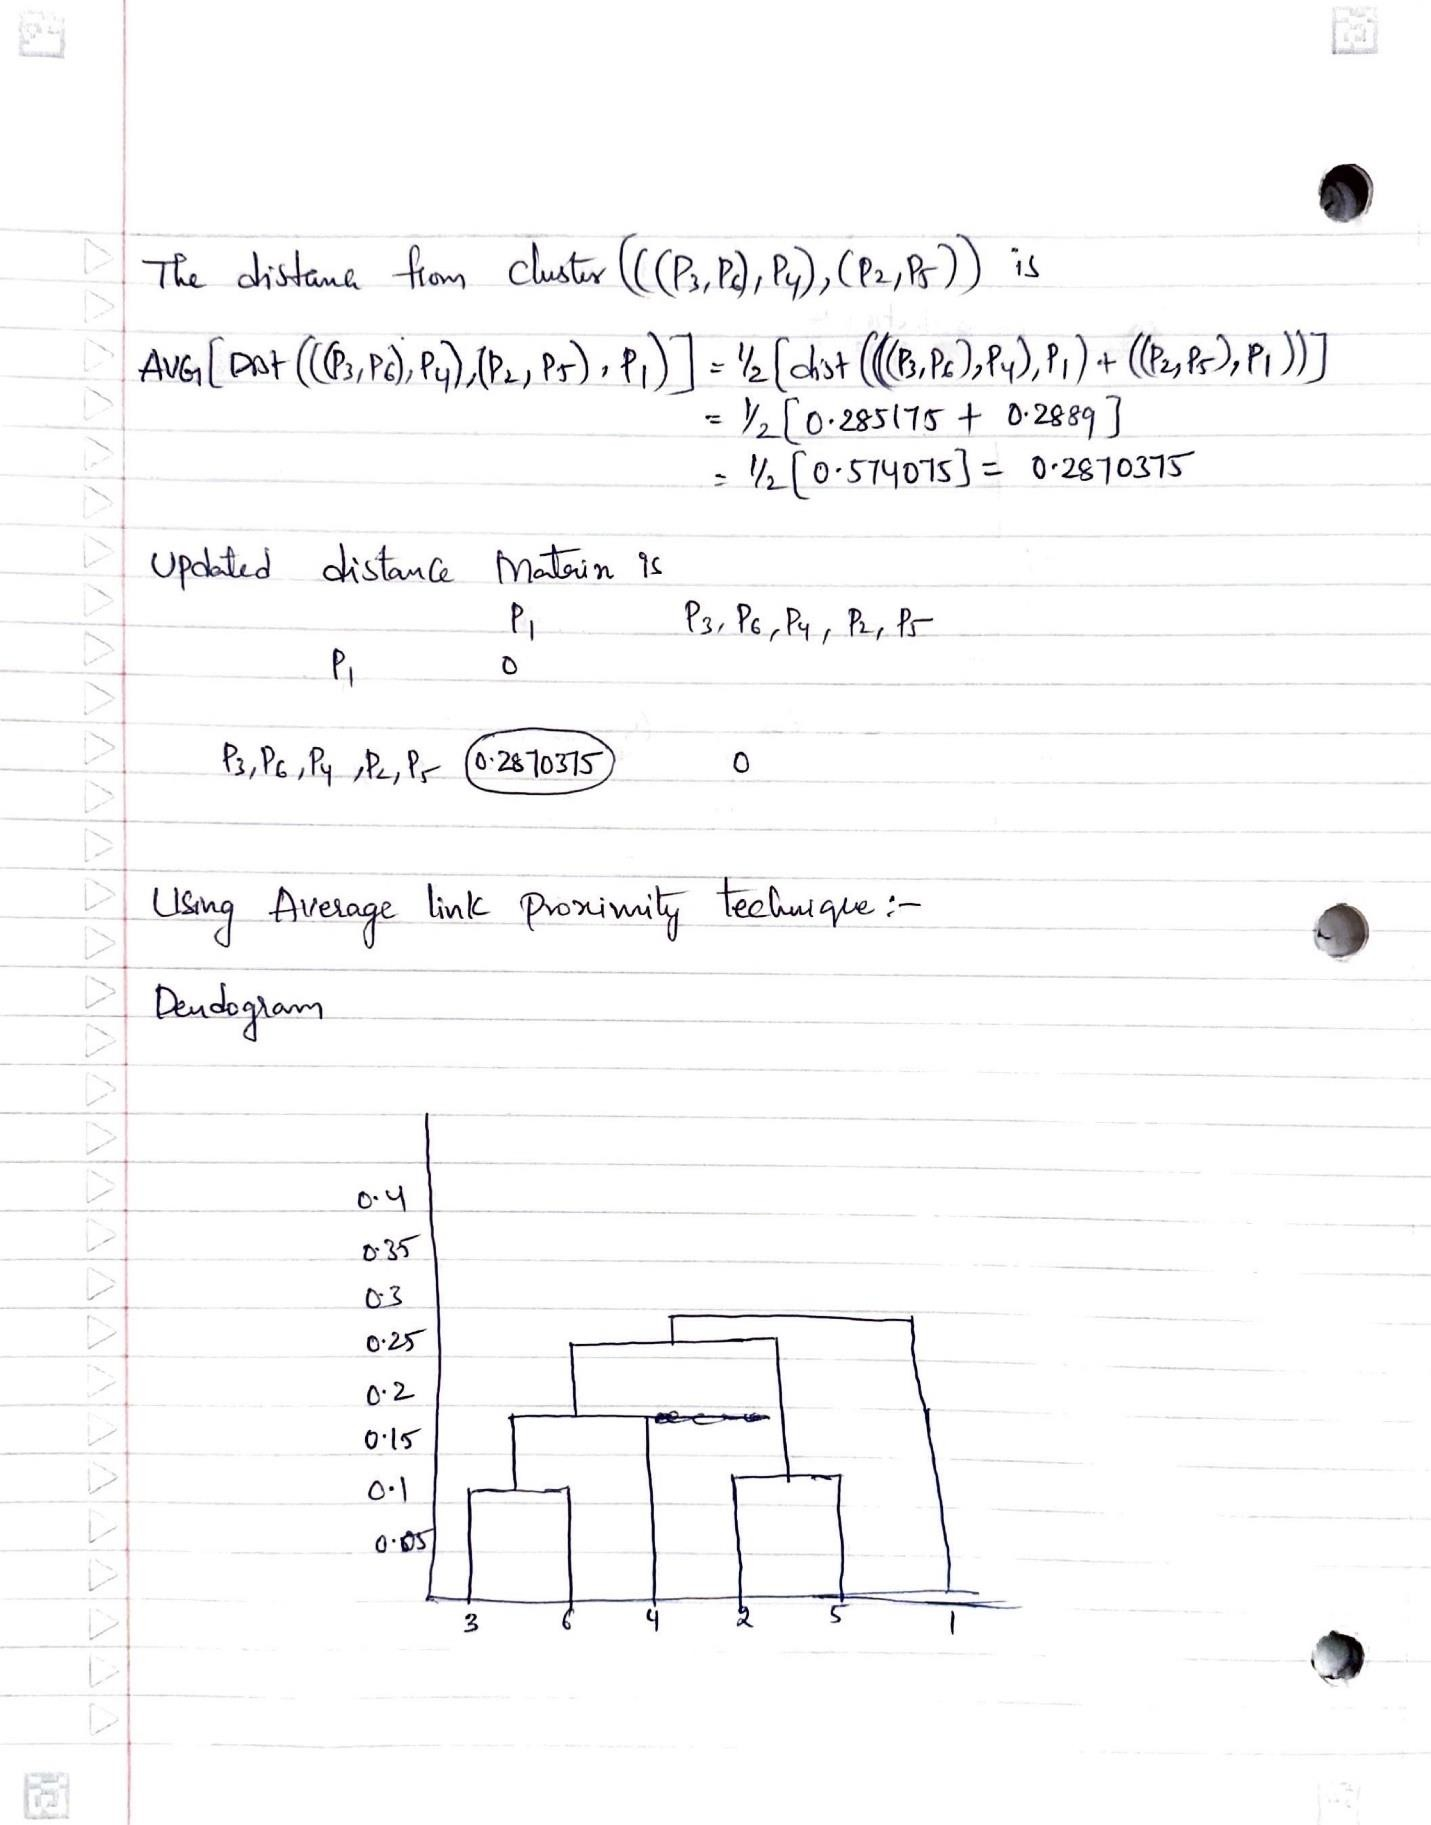 The distance from cluster (((P3,P6),P4),(P2,P5)) is
AVG[Dist(((P3,P6),P4),(P2,P5),P1)] = 1/2[dist((((P3,P6),P4),P1)+((P2,P5),P1))]
= 1/2[0.285175 + 0.2889]
= 1/2[0.574075] = 0.2870375
Updated distance Matrix is
P1 P3, P6, P4, P2, P5
P1 0
P3, P6, P4, P2, P5 0.2870375 0
Using Average link proximity technique :-
Dendogram
0.4
0.35
0.3
0.25
0.2
0.15
0.1
0.05
3 6 4 2 5 1